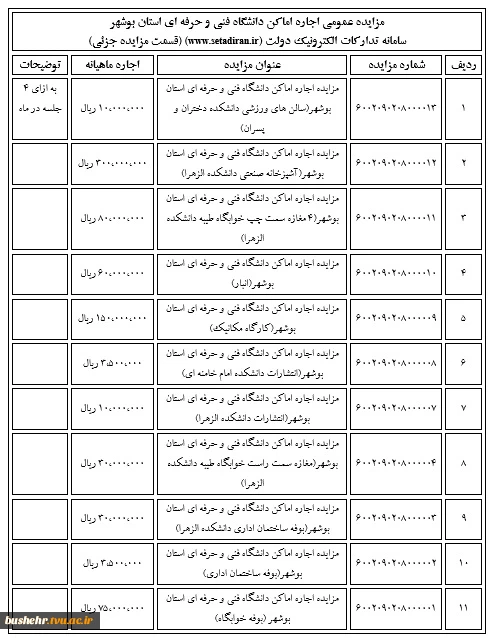 مزایده عمومی اجاره اماکن دانشگاه فنی و حرفه ای استان بوشهر
سامانه تدارکات الکترونیک دولت (www.setadiran.ir) (قسمت مزایده جزئی)
ردیف شماره مزایده عنوان مزایده اجاره ماهیانه توضیحات
مزایده اجاره اماکن دانشگاه فنی و حرفه ای استان به ازای ۴
۱ ۶۰۰۲۰۹۰۲۰۸۰۰۰۰۱۳ بوشهر(سالن های ورزشی دانشکده دختران و ۱۰،۰۰۰،۰۰۰ ریال جلسه در ماه
پسران)
مزایده اجاره اماکن دانشگاه فنی و حرفه ای استان
۲ ۶۰۰۲۰۹۰۲۰۸۰۰۰۰۱۲ ۳۰۰،۰۰۰،۰۰۰ ریال
بوشهر(آشپزخانه صنعتی دانشکده الزهرا)
مزایده اجاره اماکن دانشگاه فنی و حرفه ای استان
۳ ۶۰۰۲۰۹۰۲۰۸۰۰۰۰۱۱ بوشهر(۴ مغازه سمت چپ خوابگاه طیبه دانشکده ۸۰،۰۰۰،۰۰۰ ریال
الزهرا)
مزایده اجاره اماکن دانشگاه فنی و حرفه ای استان
۴ ۶۰۰۲۰۹۰۲۰۸۰۰۰۰۱۰ ۶۰،۰۰۰،۰۰۰ ریال
بوشهر(انبار)
مزایده اجاره اماکن دانشگاه فنی و حرفه ای استان
۵ ۶۰۰۲۰۹۰۲۰۸۰۰۰۰۰۹ ۱۵۰،۰۰۰،۰۰۰ ریال
بوشهر(کارگاه مکانیک)
مزایده اجاره اماکن دانشگاه فنی و حرفه ای استان
۶ ۶۰۰۲۰۹۰۲۰۸۰۰۰۰۰۸ ۳،۵۰۰،۰۰۰ ریال
بوشهر(انتشارات دانشکده امام خامنه ای)
مزایده اجاره اماکن دانشگاه فنی و حرفه ای استان
۷ ۶۰۰۲۰۹۰۲۰۸۰۰۰۰۰۷ ۱۰،۰۰۰،۰۰۰ ریال
بوشهر(انتشارات دانشکده الزهرا)
مزایده اجاره اماکن دانشگاه فنی و حرفه ای استان
۸ ۶۰۰۲۰۹۰۲۰۸۰۰۰۰۰۴ بوشهر(مغازه سمت راست خوابگاه طیبه دانشکده ۳۰،۰۰۰،۰۰۰ ریال
الزهرا)
مزایده اجاره اماکن دانشگاه فنی و حرفه ای استان
۹ ۶۰۰۲۰۹۰۲۰۸۰۰۰۰۰۳ ۳۰،۰۰۰،۰۰۰ ریال
بوشهر(بوفه ساختمان اداری دانشکده الزهرا)
مزایده اجاره اماکن دانشگاه فنی و حرفه ای استان
۱۰ ۶۰۰۲۰۹۰۲۰۸۰۰۰۰۰۲ ۳،۵۰۰،۰۰۰ ریال
بوشهر(بوفه ساختمان اداری)
مزایده اجاره اماکن دانشگاه فنی و حرفه ای استان
۱۱ ۶۰۰۲۰۹۰۲۰۸۰۰۰۰۰۱ ۷۵،۰۰۰،۰۰۰ ریال
بوشهر (بوفه خوابگاه)
bushehr.tvu.ac.ir